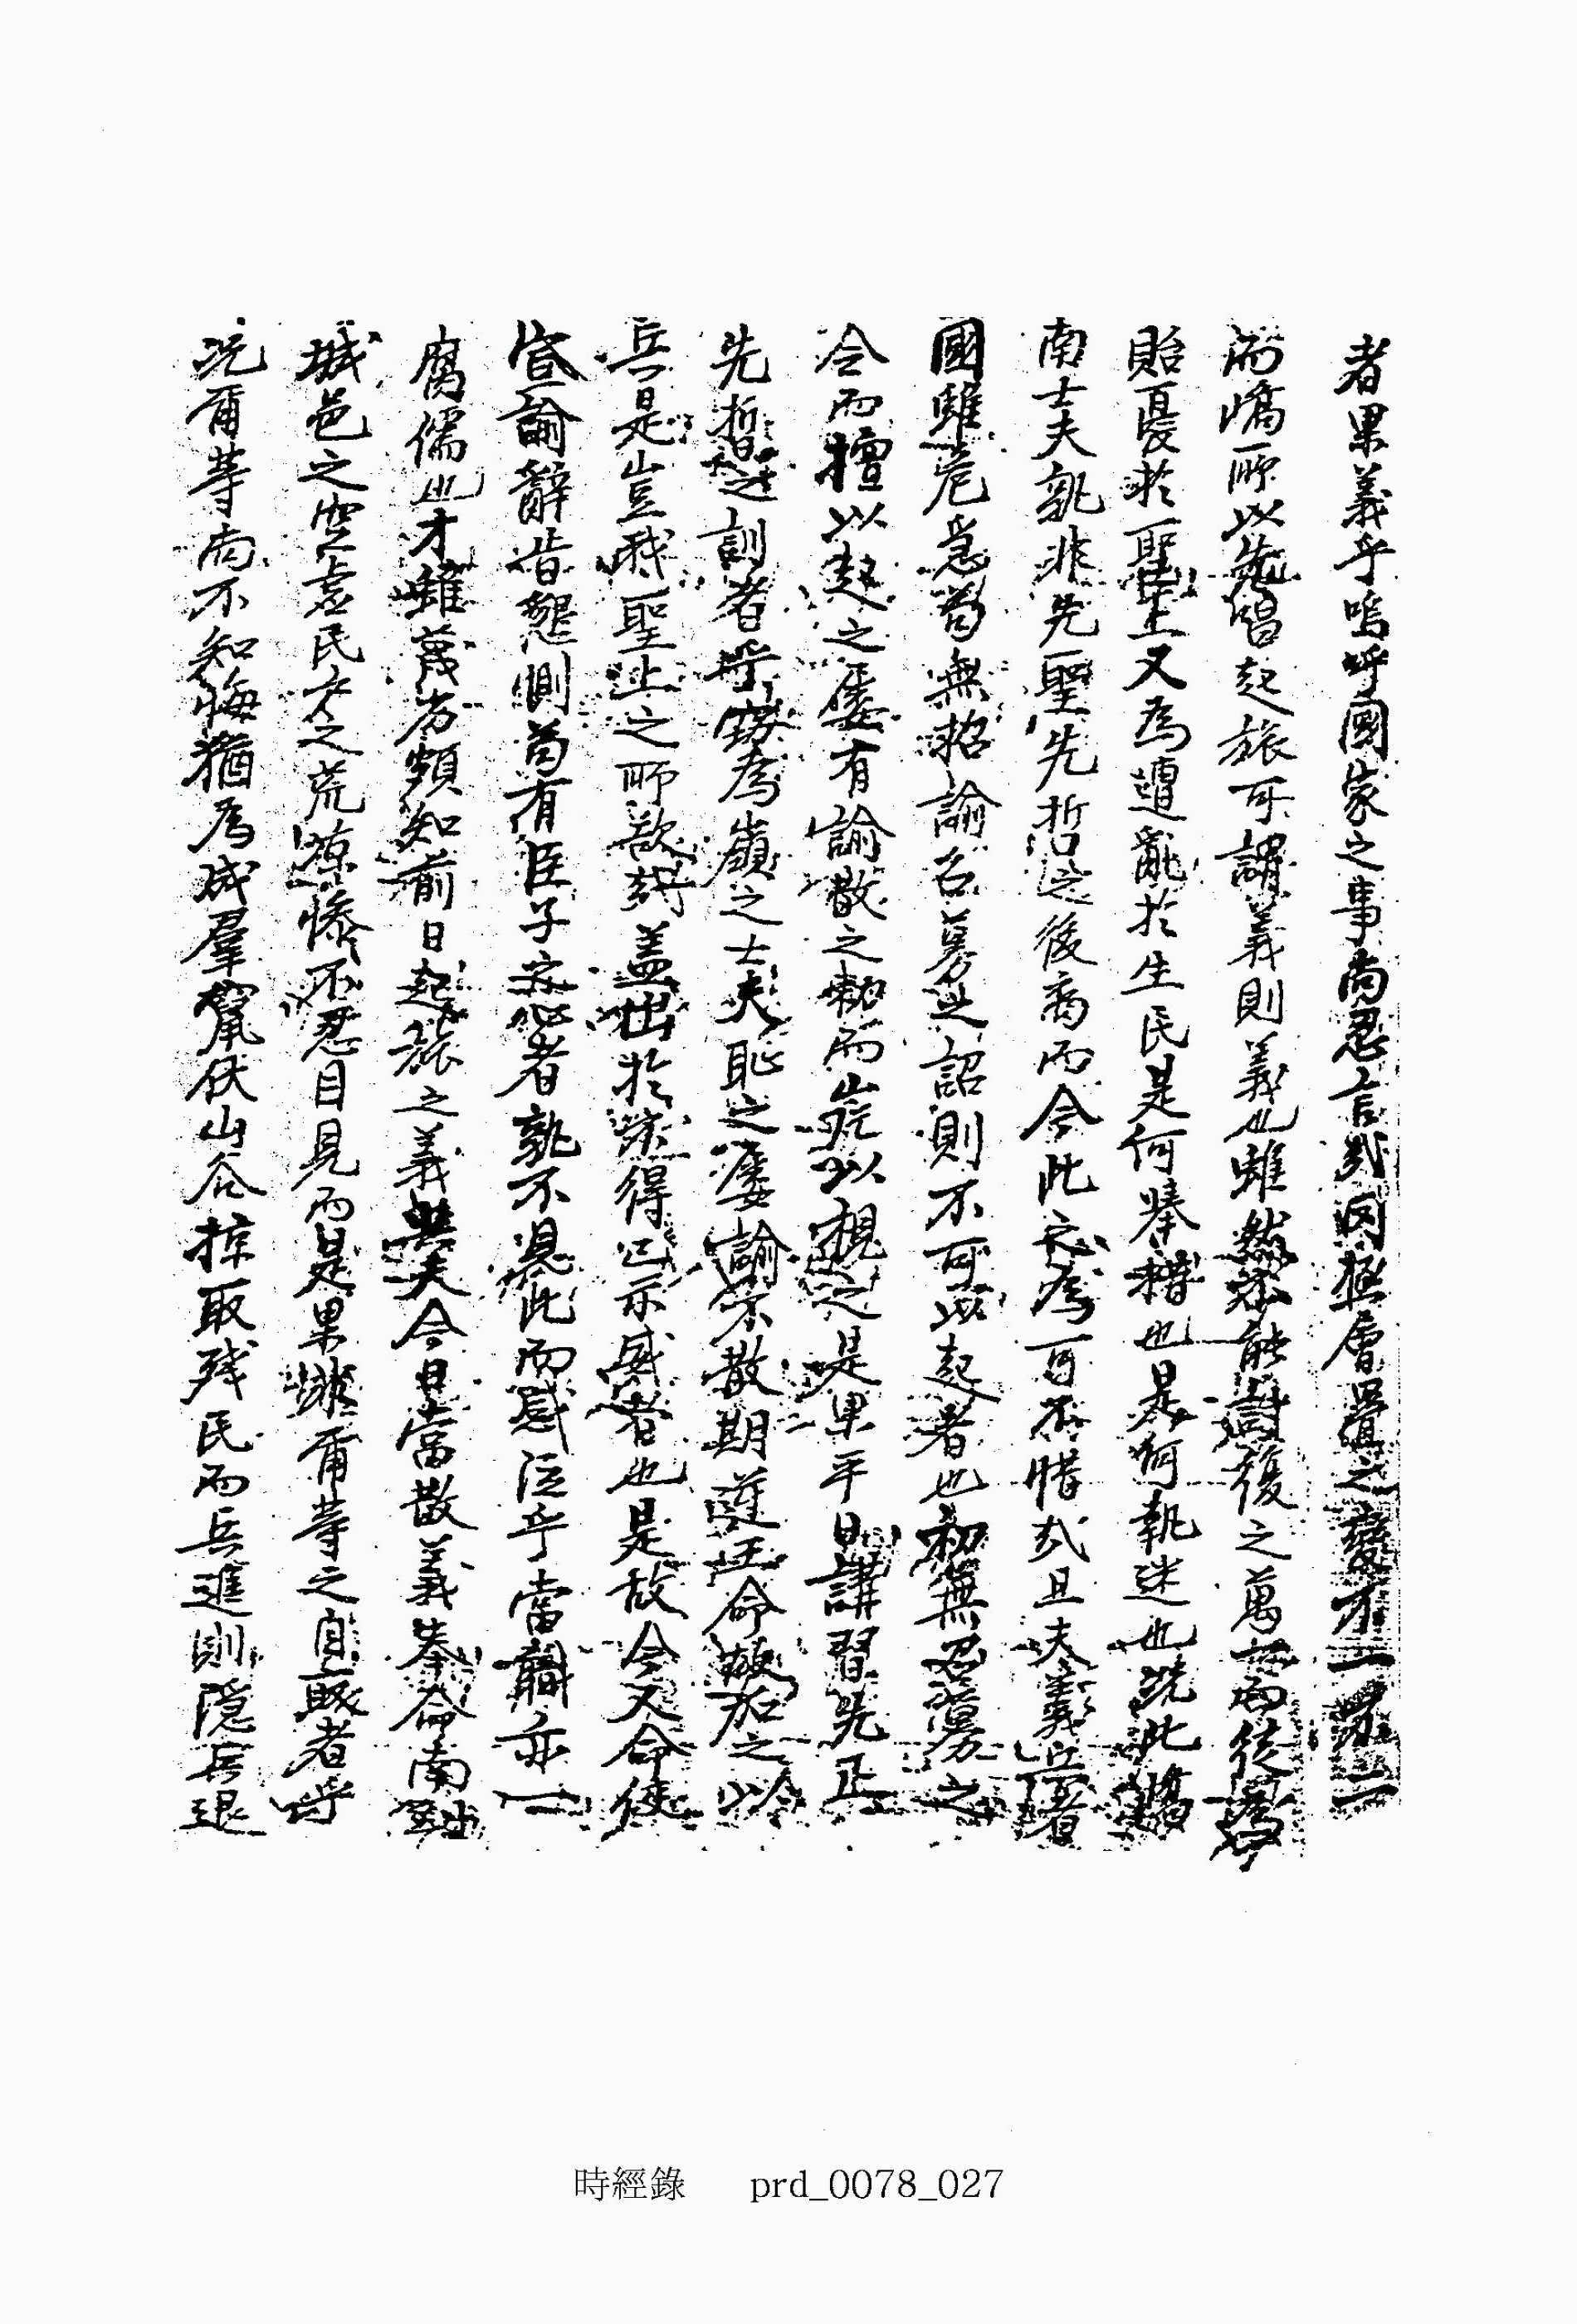 者果義乎嗚呼國家之事尚忍言哉罔極層疊之變不一二
而嶠所以先倡起旅可謂義則義也雖然不能討復之萬一而後
貽憂於聖上又爲遭亂於生民是何擧措也是何執迷也况此嶠
南士夫孰非先聖先哲之後裔而今此之爲可不惜哉且夫義兵者
國雖危急苟無招諭召募之詔則不可以起者也初無召募之
令而擅以起之屢有諭散之勅而以視之是果平日講習先正
先哲之訓者乎竊爲嶺之士夫恥之屢諭不散期違王命故加之以
兵是豈我聖上之所欲哉盖出於不得已示威者也是故今又命使
宣諭辭旨懇惻苟有臣子之心者孰不見此而感泣乎當職亦一
腐儒也才雖蔑劣頗知前日起旅之義與夫今日當散義奉命南
城邑之空虛民戶之荒凉慘不忍目見而是果爾等之自取者乎
况爾等尚不知悔猶爲成羣竄伏山谷掠取殘民而兵進則隱兵退
時經錄 prd_0078_027